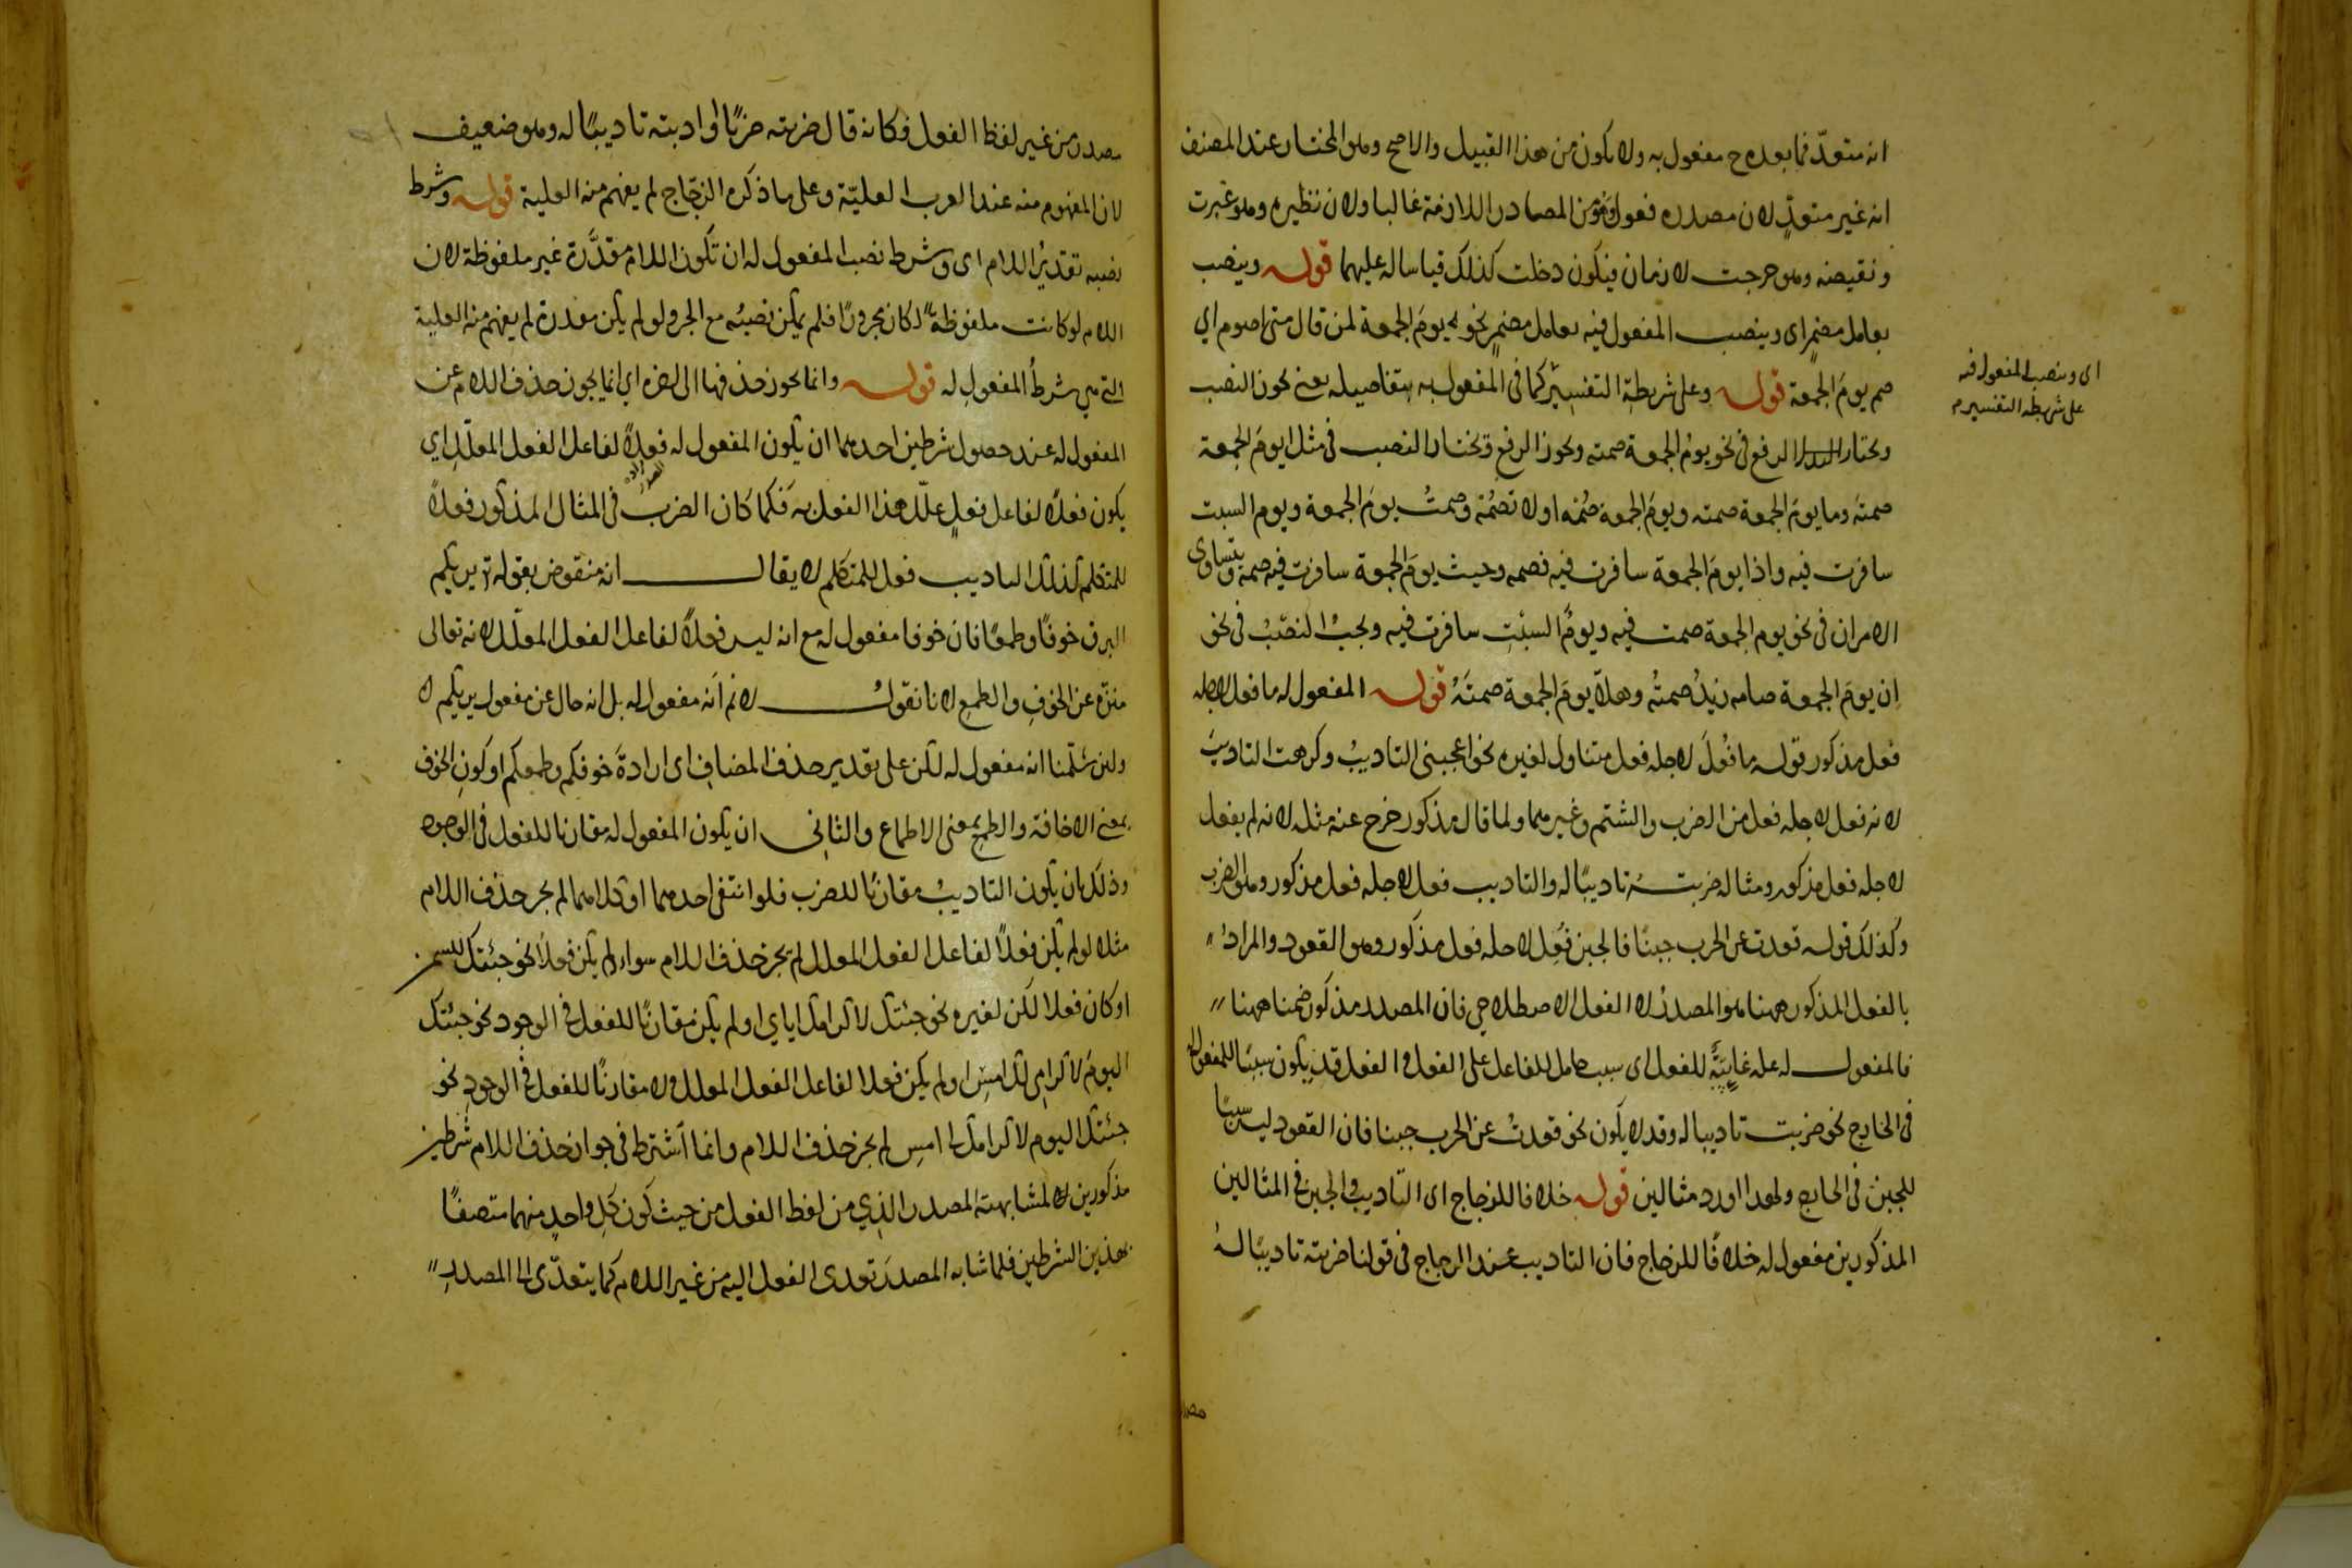 انه متعدّ فما بعده ح مفعول به ولا يكون من هذا القبيل والاصح وهو المختار عند المصنف
انه غير متعدٍّ لان مصدره فعول وهو من المصادر اللازمة غالبا ولان نظيره وهو غبرت
ونقيضه وهو خرجت لازمان فيكون دخلت كذلك قياسا له عليهما قوله وينصب
بعامل مضمرٍ اى وينصب المفعول فيه بعامل مضمرٍ نحو يومَ الجمعة لمن قال متى اصوم اي
صم يومَ الجمعة قوله وعلى شريطة التفسير كما فى المفعول به بتفاصيله يعنى يجوز النصب
اى وينصب المفعول فيه
على شريطة التفسير م
ويختار الرفع فى نحو يومُ الجمعة صمته ويجوز الرفع ويختار النصب فى مثل ايومَ الجمعة
صمتَه وما يومَ الجمعة صمته ويومَ الجمعة صُمْه او لا تصُمْه وصمتُ يومَ الجمعة ويوم السبت
سافرت فيه واذا يومَ الجمعة سافرت فيه فصمه وحيث يومَ الجمعة سافرت فيه صمه ويتساوى
الامران فى نحو يوم الجمعة صمت فيه ويومَ السبْتِ سافرت فيه ويجبُ النصْبُ فى نحو
اِن يومَ الجمعة صامه زيدُ صمتُه وهلّا يومَ الجمعة صمتَهُ قوله المفعول له ما فعل لاجله
فعل مذكور قوله ما فُعلَ لاجله فعل متناول لغيره نحو اعجبنى التاديبُ وكرهت التاديبَ
لانه فعل لاجله فعل من الضرب والشتم وغيرهما ولما قال مذكور خرج عنه مثله لانه لم يفعل
لاجله فعل مذكور ومثاله ضربتُه تاديبًا له والتاديب فعل لاجله فعل مذكور وهو الضرب
وكذلك قوله قعدت عن الحرب جبنًا فالجبن فُعِل لاجله فعل مذكور وهو القعود والمراد
بالفعل المذكور ههنا هو المصدرُ لا الفعل الاصطلاحي فان المصدر مذكور ضمنا ههنا
فالمفعول له علة غاييّةٌ للفعل اى سبب حامل للفاعل على الفعل والفعل قد يكون سببًا للمفعول له
فى الخارج نحو ضربت تاديبا له وقد لا يكون نحو قعدتُ عن الحرب جبنا فان القعود ليس سببًا
للجبن فى الخارج ولهذا اورد مثالين قوله خلافا للزجاج اى التاديب والجبن فى المثالين
المذكورين مفعول له خلافًا للزجاج فان التاديب عند الزجاج فى قولنا ضربته تاديبًا لهُ
مصدر
مصدر من غير لفظ الفعل فكانه قال ضربته ضربًا او ادبته تاديبًا له وهو ضعيف
لان المفهوم منه عند العرب العليّة وعلى ما ذكره الزجّاج لم يفهم منه العلية قوله وشرط
نصبه تقديرُ اللام اى وشرط نصب المفعول له ان تكون اللام مقدَّرة غير ملفوظة لان
اللام لو كانت ملفوظةً لكان مجرورًا فلم يمكن نصبُه مع الجر ولو لم يكن مقدرة لم يفهم منه العلية
التي هي شرطُ المفعولِ له قوله وانما يجوز حذفها الى اخره اي انما يجوز حذف اللام عن
المفعول له عند حصول شرطين احدهما ان يكون المفعول له فعلًا لفاعل الفعل المعلّل اي
يكون فعلًا لفاعل فعلٍ علّل هذا الفعل به فكما كان الضرب فى المثال المذكور فعلًا
للمتكلم كذلك التاديب فعل للمتكلم لا يقال انه منقوض بقوله تعالى يريكم
البرق خوفًا وطمعًا فان خوفا مفعول له مع انه ليس فعلًا لفاعل الفعل المعلّل لانه تعالى
منزّه عن الخوفِ والطمعِ لانا نقولُ لا نم اَنه مفعول له بل انه حال عن مفعول يريكم
ولئن سلّمنا انه مفعول له لكن على تقدير حذف المضافِ اى ارادةَ خوفكم وطمعكم او كونِ الخوف
بمعنى الاخافة والطمعِ بمعنى الاطماع والثانى ان يكون المفعول له مقارنا للفعل فى الوجود
وذلك بان يكون التاديبُ مقارنًا للضرب فلو انتفى احدهما او كلاهما لم يجز حذف اللام
مثلا لو لم يكن فعلًا لفاعل الفعل المعلل لم يجز حذف اللام سواء لم يكن فعلًا نحو جئتك للسمن
او كان فعلا لكن لغيره نحو جئتك لاكرامك اياي او لم يكن مقارنًا للفعل فى الوجود نحو جئتك
اليومَ لاكرامي لك امسِ او لم يكن فعلا لفاعل الفعل المعلل ولا مقارنًا للفعل فى الوجودِ نحو
جئتك اليوم لاكرامك لى امسِ لم يجز حذف اللام وانما اشترط فى جواز حذف اللام شرطين
مذكورين لمشابهته المصدر الذي من لفظ الفعل من حيث كون كلِ واحدٍ منهما متصفًا
بهذين الشرطين فلما شابه المصدرَ تعدى الفعل اليه من غير اللام كما يتعدّى الى المصدرِ